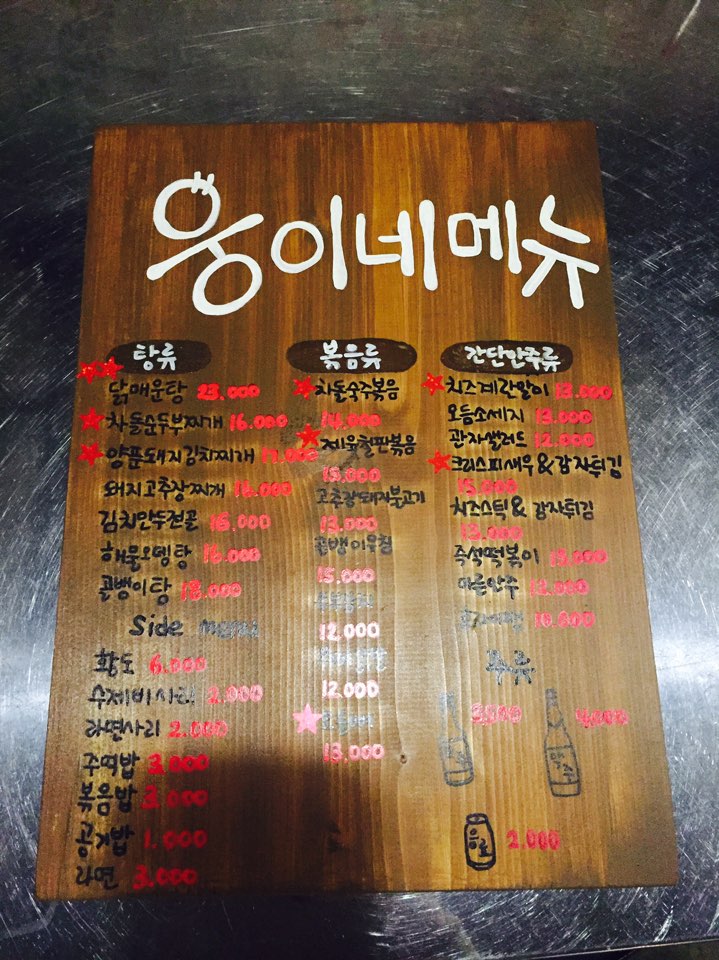 웅이네메뉴
탕류
닭매운탕 23.000
차돌순두부찌개 16.000
양푼돼지김치찌개 17.000
돼지고추장찌개 16.000
김치만두전골 16.000
해물오뎅탕 16.000
골뱅이탕 18.000
Side menu
황도 6.000
수제비사리 2.000
라면사리 2.000
주먹밥 3.000
볶음밥 3.000
공기밥 1.000
라면 3.000
볶음류
차돌숙주볶음
14.000
제육철판볶음
15.000
고추장돼지불고기
13.000
골뱅이무침
15.000
12.000
12.000
13.000
간단안주류
치즈계란말이 13.000
모듬소세지 13.000
관자샐러드 12.000
크리스피새우&감자튀김
15.000
치즈스틱&감자튀김
13.000
즉석떡볶이 15.000
마른안주 12.000
10.000
주류
3.000
4.000
음료 2.000